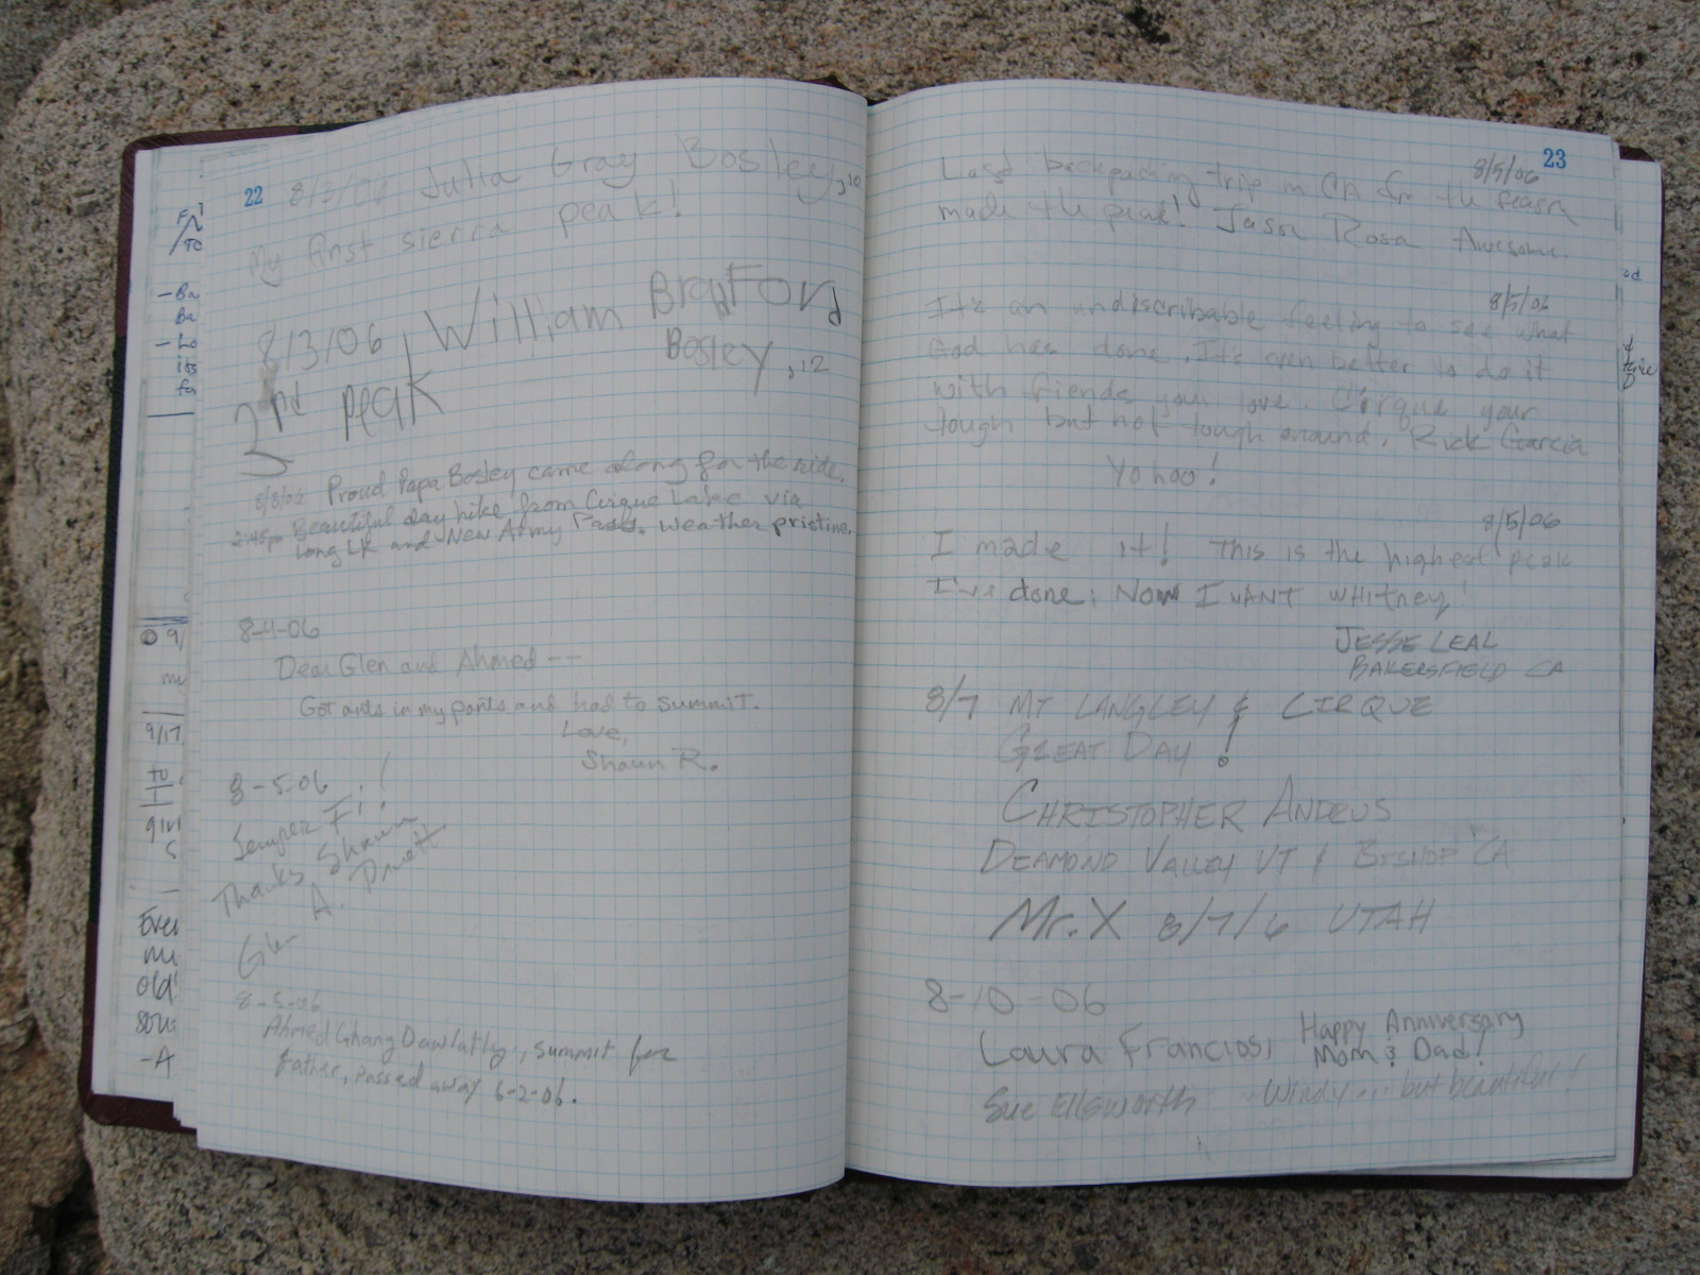 22 8/3/06 Julia Gray Bosley, 10
My first sierra peak!
8/3/06, William Bradford
Bosley, 12
2nd peak
Proud Papa Bosley came along for the ride.
2:45p Beautiful day hike from Cirque Lake via
Long Lk and New Army Pass. Weather pristine.
8-4-06
Dear Glen and Ahmed --
Got ants in my pants and had to summit.
Love,
Shaun R.
8-5-06
Semper Fi!
Thanks Shaun
A.
Glen
8-5-06
Ahmed Ghang Dawlatly, summit for
father, passed away 6-2-06.
23
8/5/06
Last backpacking trip in CA for the season
made the peak! Jason Rosa Awesome.
8/5/06
It's an undiscribable feeling to see what
God has done. It's even better to do it
with friends you love. Cirque your
tough but not tough enough. Rick Garcia
Yohoo!
8/5/06
I made it! This is the highest peak
I've done. Now I WANT WHITNEY!
JESSE LEAL
BAKERSFIELD CA
8/7 MT LANGLEY & CIRQUE
GREAT DAY!
CHRISTOPHER ANDRUS
DEAMOND VALLEY UT / BISHOP CA
Mr. X 8/7/6 UTAH
8-10-06
Laura Franciosi Happy Anniversary
Mom & Dad!
Sue Ellsworth Windy... but beautiful!